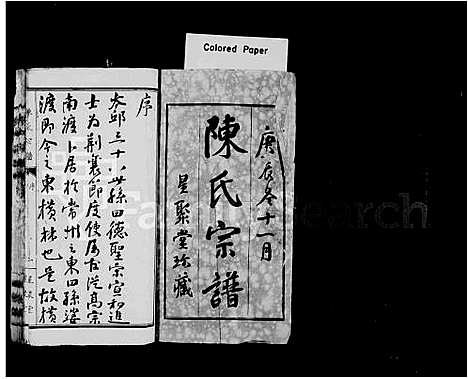 Colored Paper
庚辰冬十一月
陳氏宗譜
星聚堂珍藏
序
太邱三十八世孫曰德聖宗宣和進
士為荊襄節度使屬扈從高宗
南渡卜居於常州之東曰孫婆
渡即今之東橫林也是故橫
FamilySearch